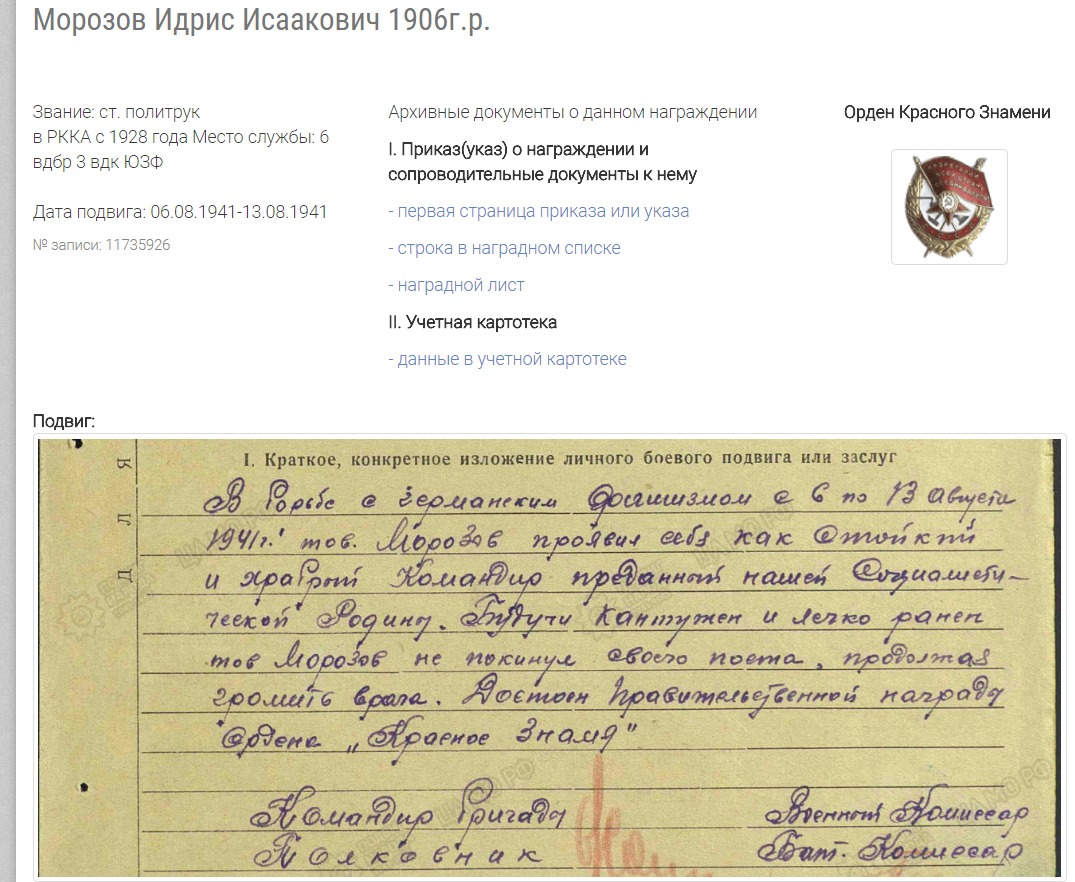 Морозов Идрис Исаакович 1906г.р.
Звание: ст. политрук
в РККА с 1928 года Место службы: 6
вдбр 3 вдк ЮЗФ
Дата подвига: 06.08.1941-13.08.1941
№ записи: 11735926
Архивные документы о данном награждении
I. Приказ(указ) о награждении и
сопроводительные документы к нему
- первая страница приказа или указа
- строка в наградном списке
- наградной лист
II. Учетная картотека
- данные в учетной картотеке
Орден Красного Знамени
Подвиг:
Д Л Я
I. Краткое, конкретное изложение личного боевого подвига или заслуг
В борьбе с германским фашизмом с 6 по 13 августа
1941г. тов. Морозов проявил себя как стойкий
и храбрый Командир преданный нашей Социалисти-
ческой Родины. Будучи кантужен и легко ранен
тов Морозов не покинул своего поста, продолжая
громить врага. Достоен Правительственной награды
Ордена „Красное Знамя"
Командир бригады
Полковник
Военный Комиссар
Бат. Комиссар